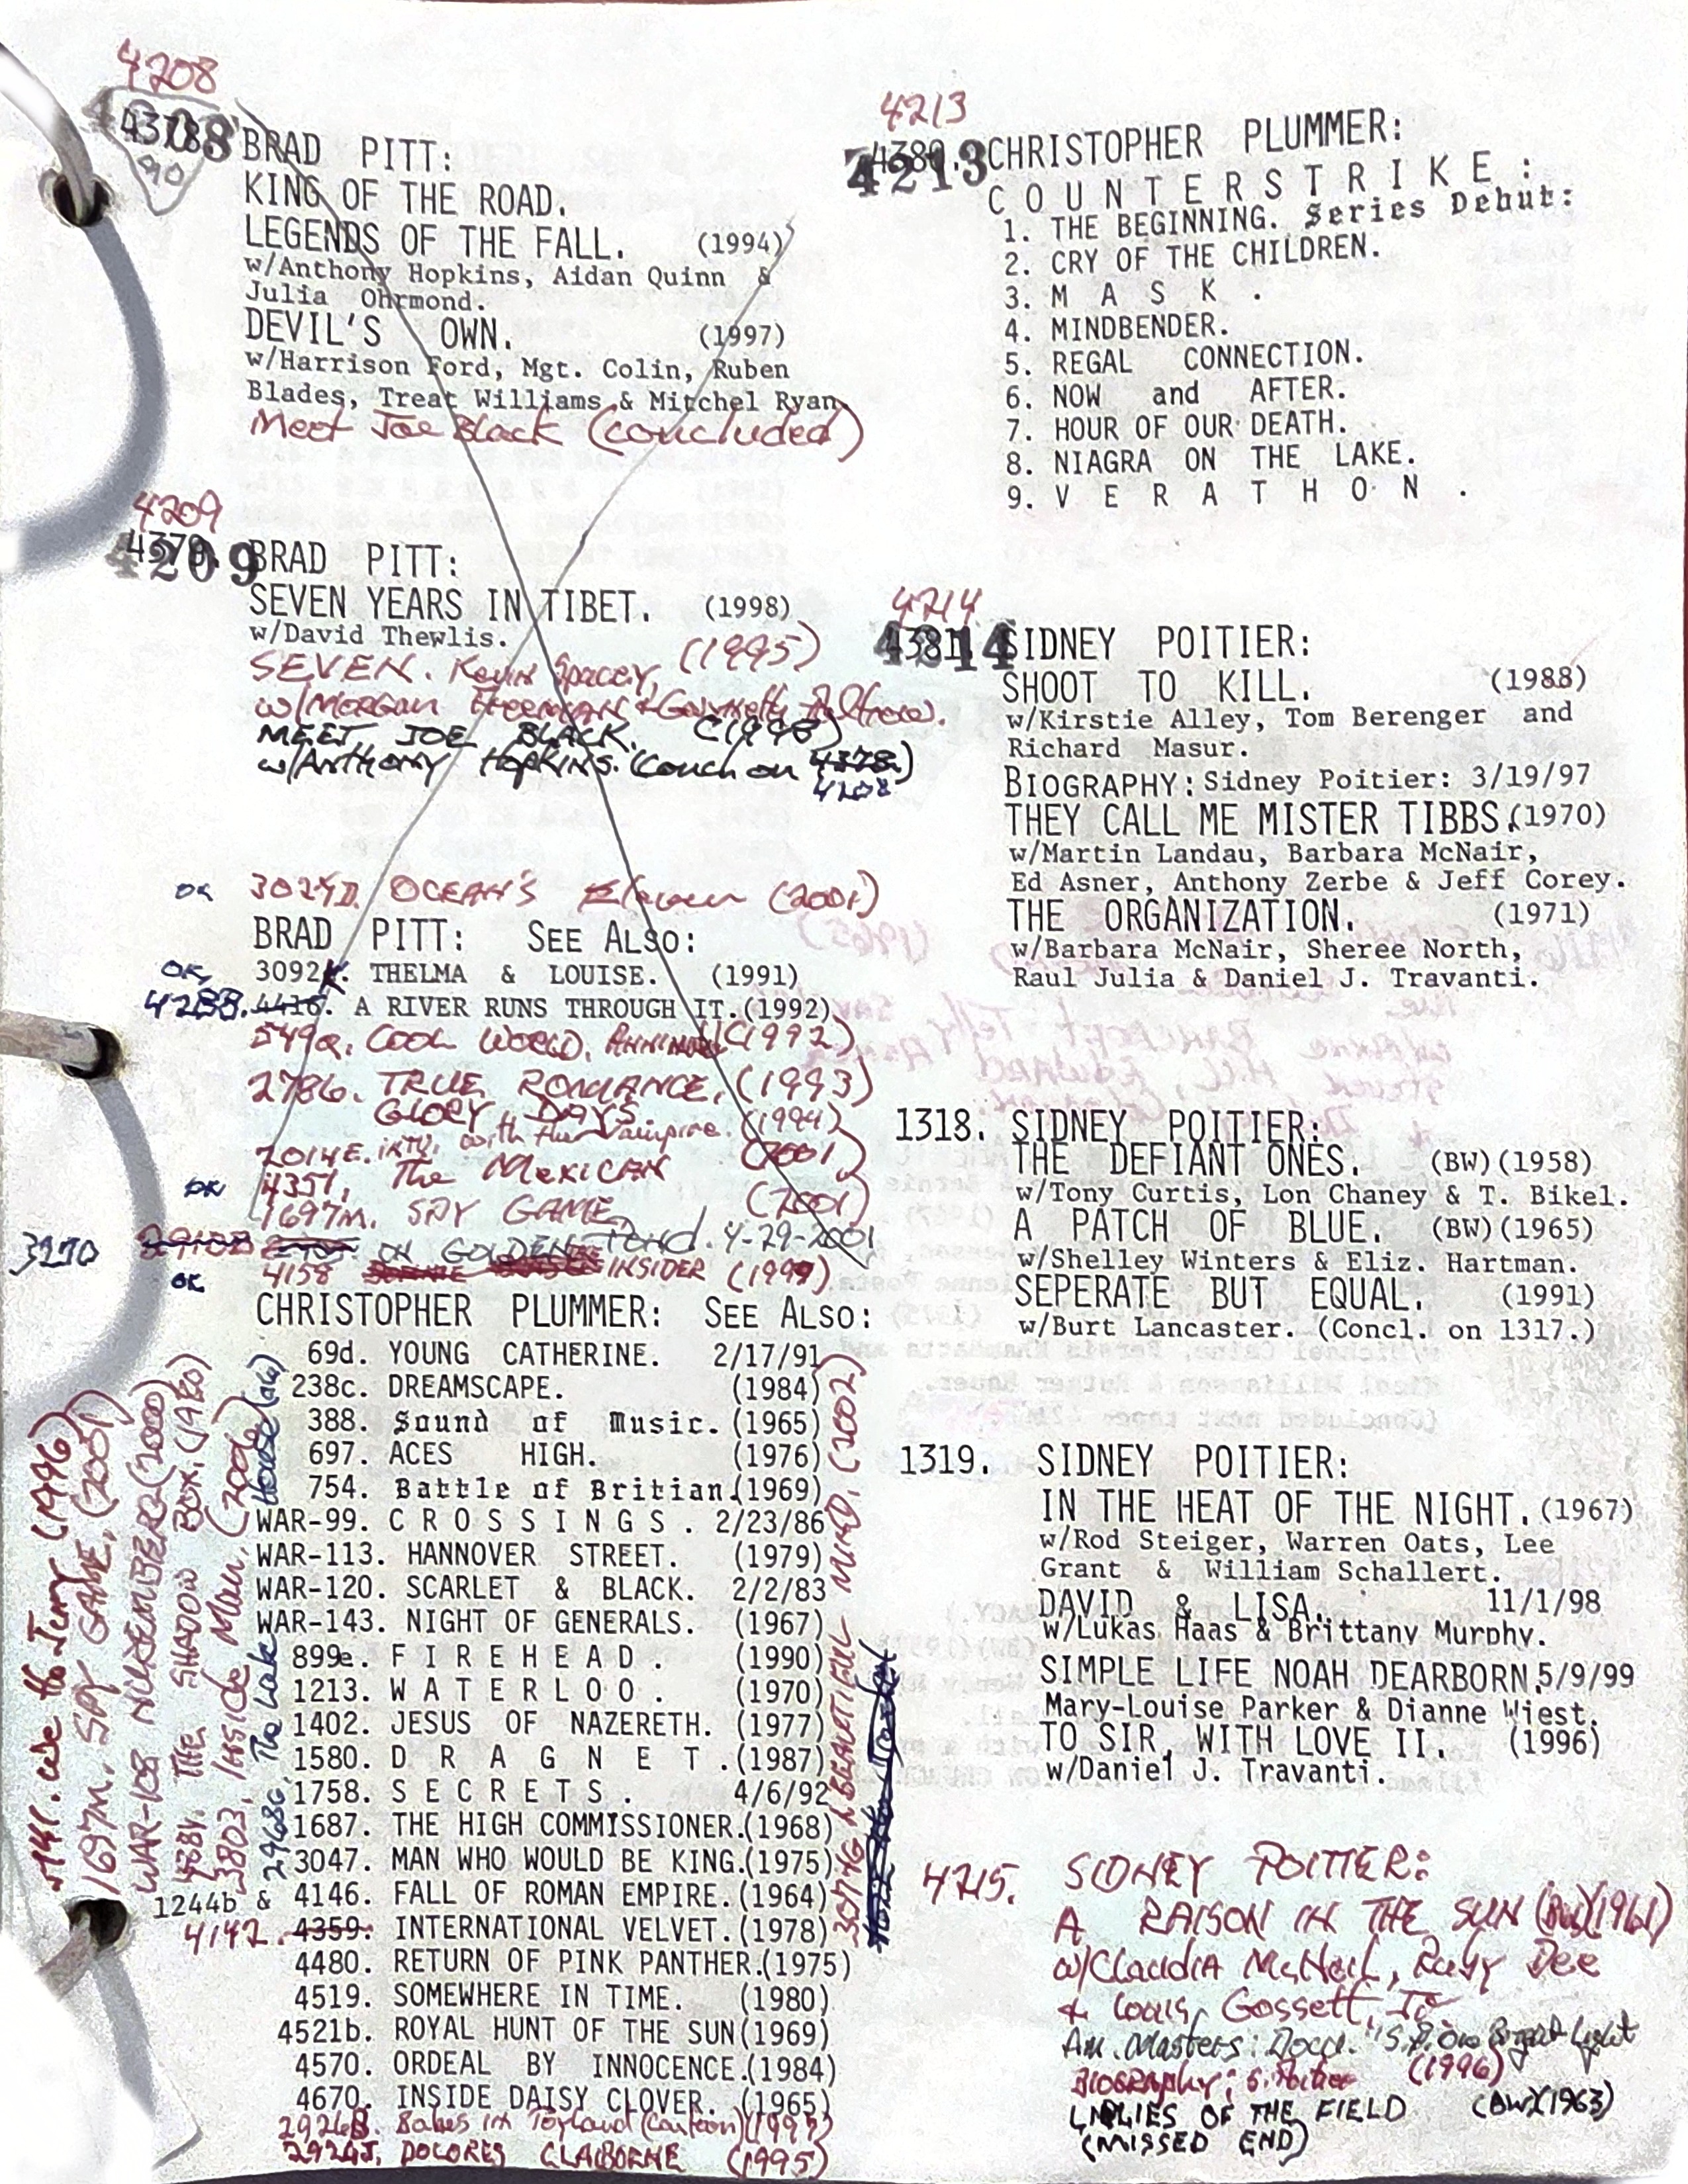 4208
90
BRAD PITT:
KING OF THE ROAD.
LEGENDS OF THE FALL. (1994)
w/Anthony Hopkins, Aidan Quinn &
Julia Ohrmond.
DEVIL'S OWN. (1997)
w/Harrison Ford, Mgt. Colin, Ruben
Blades, Treat Williams & Mitchel Ryan
Meet Joe Black (concluded)
4209
4379. 4209
BRAD PITT:
SEVEN YEARS IN TIBET. (1998)
w/David Thewlis.
SEVEN. Kevin Spacey, (1995)
w/MORGAN FREEMAN &
MEET JOE BLACK. (1998)
w/Anthony Hopkins. (conch on 4378.)
4208
OK 3024D. OCEAN'S Eleven (2001)
BRAD PITT: SEE ALSO:
OK, 3092K. THELMA & LOUISE. (1991)
4288. 4416. A RIVER RUNS THROUGH IT. (1992)
549a. COOL WORLD. (1992)
2786. TRUE ROMANCE. (1993)
GLORY DAYS.
2014E. intv. with the Vampire. (1994)
OK 4351. The MEXICAN (2001)
1697m. SPY GAME. (2001)
3270 ON GOLDEN Pond. 4-29-2001
OK 4158 INSIDER (1999)
CHRISTOPHER PLUMMER: SEE ALSO:
69d. YOUNG CATHERINE. 2/17/91
238c. DREAMSCAPE. (1984)
388. Sound of Music. (1965)
697. ACES HIGH. (1976)
754. Battle of Britian. (1969)
WAR-99. C R O S S I N G S . 2/23/86
WAR-113. HANNOVER STREET. (1979)
WAR-120. SCARLET & BLACK. 2/2/83
WAR-143. NIGHT OF GENERALS. (1967)
899e. F I R E H E A D . (1990)
1213. W A T E R L O O . (1970)
1402. JESUS OF NAZERETH. (1977)
1580. D R A G N E T . (1987)
1758. S E C R E T S . 4/6/92
1687. THE HIGH COMMISSIONER. (1968)
3047. MAN WHO WOULD BE KING. (1975)
1244b & 4146. FALL OF ROMAN EMPIRE. (1964)
4142. 4359. INTERNATIONAL VELVET. (1978)
4480. RETURN OF PINK PANTHER. (1975)
4519. SOMEWHERE IN TIME. (1980)
4521b. ROYAL HUNT OF THE SUN (1969)
4570. ORDEAL BY INNOCENCE. (1984)
4670. INSIDE DAISY CLOVER. (1965)
2926B. Babes in Toyland (Cartoon) (1997)
2924J. DOLORES CLAIBORNE (1995)
(1996)
1697m. SPY GAME, (2001)
WAR-108 NUREMBERG (2000)
4384. THE SHADOW BOX. (1980)
3803, Inside Man, (2006)
2968G. The Lake House (06)
3074G A BEAUTIFUL MIND. (2002)
4213
4380. 4213
CHRISTOPHER PLUMMER:
C O U N T E R S T R I K E :
1. THE BEGINNING. Series Debut:
2. CRY OF THE CHILDREN.
3. M A S K .
4. MINDBENDER.
5. REGAL CONNECTION.
6. NOW and AFTER.
7. HOUR OF OUR DEATH.
8. NIAGRA ON THE LAKE.
9. V E R A T H O N .
4214
4381. 4214
SIDNEY POITIER:
SHOOT TO KILL. (1988)
w/Kirstie Alley, Tom Berenger and
Richard Masur.
BIOGRAPHY: Sidney Poitier: 3/19/97
THEY CALL ME MISTER TIBBS. (1970)
w/Martin Landau, Barbara McNair,
Ed Asner, Anthony Zerbe & Jeff Corey.
THE ORGANIZATION. (1971)
w/Barbara McNair, Sheree North,
Raul Julia & Daniel J. Travanti.
1318. SIDNEY POITIER:
THE DEFIANT ONES. (BW)(1958)
w/Tony Curtis, Lon Chaney & T. Bikel.
A PATCH OF BLUE. (BW)(1965)
w/Shelley Winters & Eliz. Hartman.
SEPERATE BUT EQUAL. (1991)
w/Burt Lancaster. (Concl. on 1317.)
1319. SIDNEY POITIER:
IN THE HEAT OF THE NIGHT. (1967)
w/Rod Steiger, Warren Oats, Lee
Grant & William Schallert.
DAVID & LISA. 11/1/98
w/Lukas Haas & Brittany Murphy.
SIMPLE LIFE NOAH DEARBORN. 5/9/99
Mary-Louise Parker & Dianne Wiest.
TO SIR, WITH LOVE II. (1996)
w/Daniel J. Travanti.
4215. SIDNEY POITIER:
A RAISON IN THE SUN (BW)(1961)
w/Claudia McNeil, Ruby Dee
& Louis Gossett, Jr
Am. Masters: Docu. "S.P. One Bright Light
BIOGRAPHY: S. Poitier (1996)
LILIES OF THE FIELD (BW)(1963)
(MISSED END)